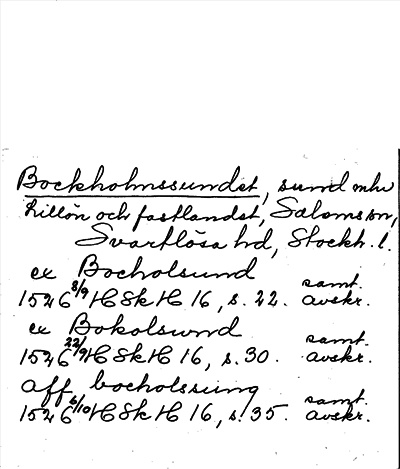 Bockholmssundet, sund mlv
Lillön och fastlandet, Salems sn,
Svartlösa hd, Stockh. l.
ex Bocholsund
1526 8/9 HSkH 16, s. 22. samt. avskr.
ex Bokolswnd
1526 22/9 HSkH 16, s. 30. samt. avskr.
aff bocholssung
1526 6/10 HSkH 16, s. 35. samt. avskr.